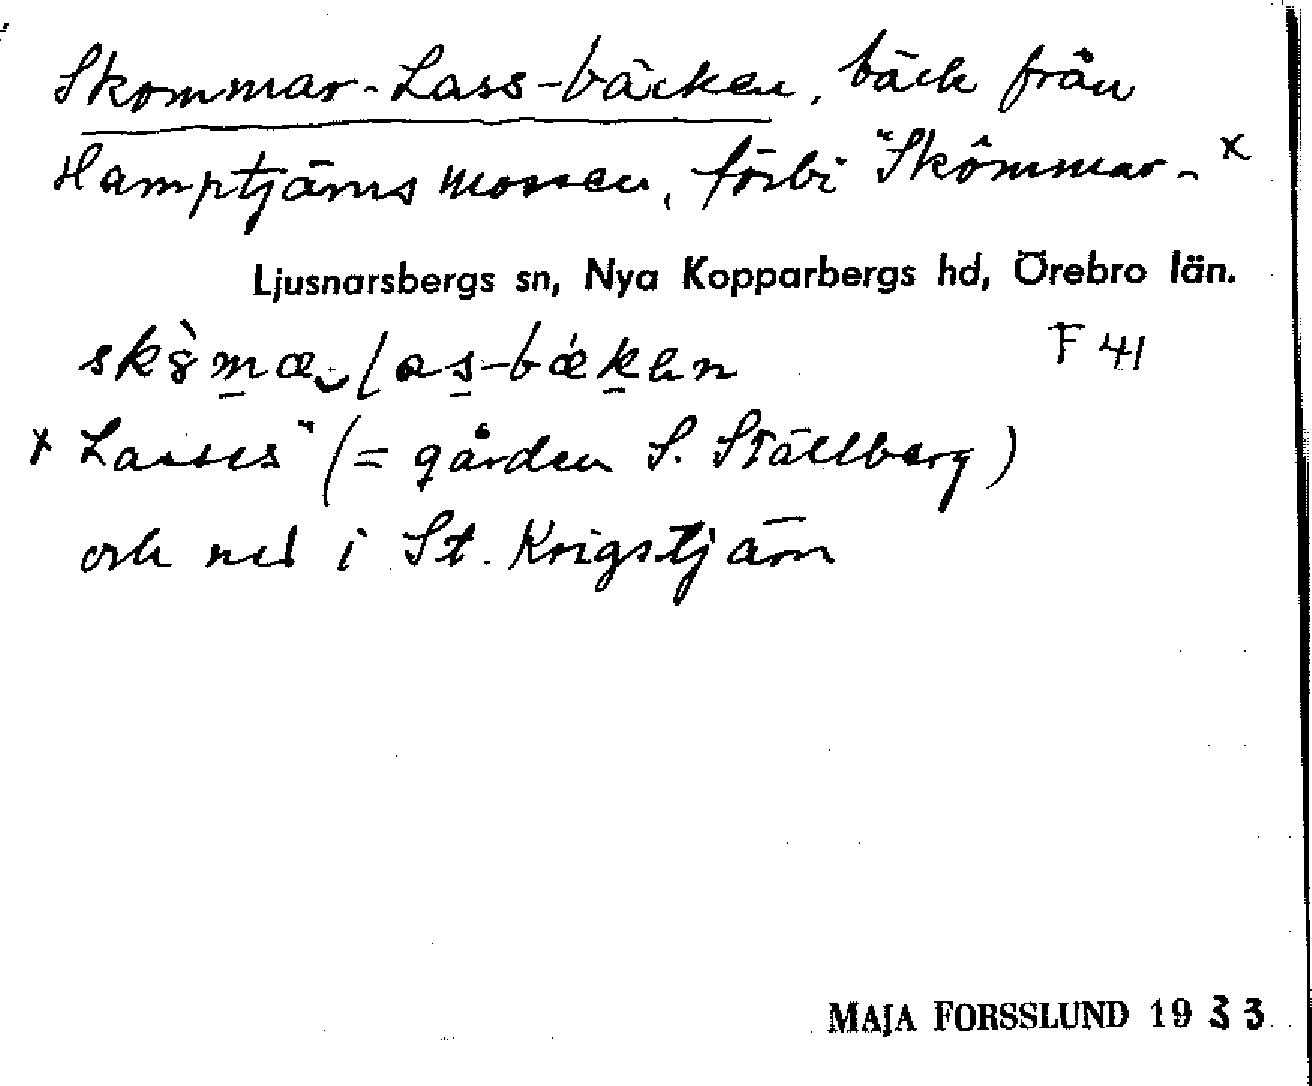 Skommar-Lass-bäcken, bäck från
Hamptjärnsmossen, förbi "Skömmar- x
Ljusnarsbergs sn, Nya Kopparbergs hd, Örebro län.
F 41
x Lasses" (= gården S. Ställberg)
och ned i St. Krigstjärn
MAJA FORSSLUND 1933